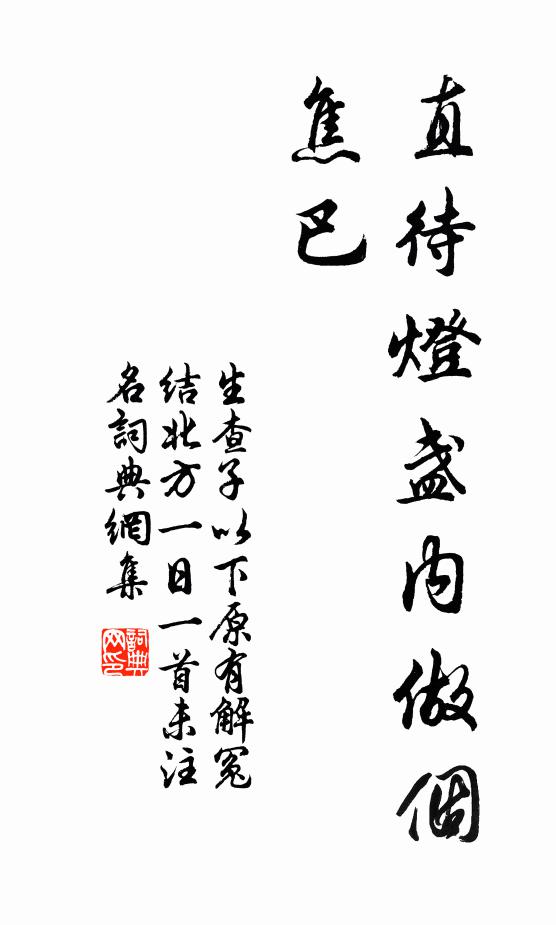 直待燈盞內做個
焦巴
生查子以下原有解冤
結北方一日一首未注
名詞典網集
詞典
网印